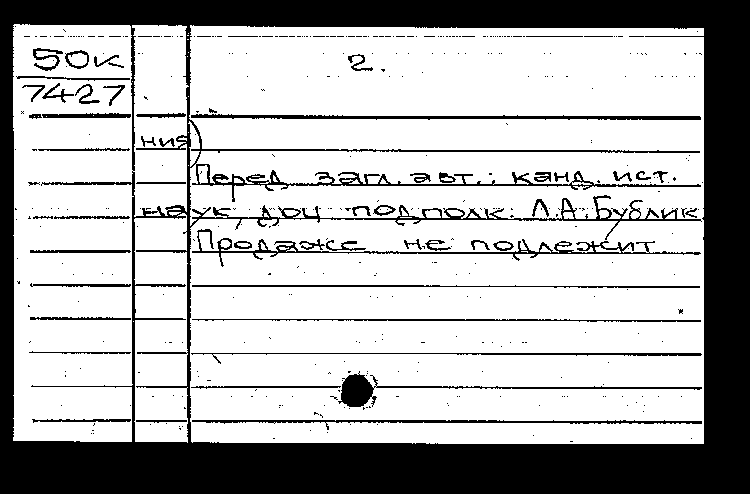 50к
7427
2.
ния)
Перед загл. авт.: канд. ист.
наук, доц. подполк. Л.А. Бублик
Продаже не подлежит